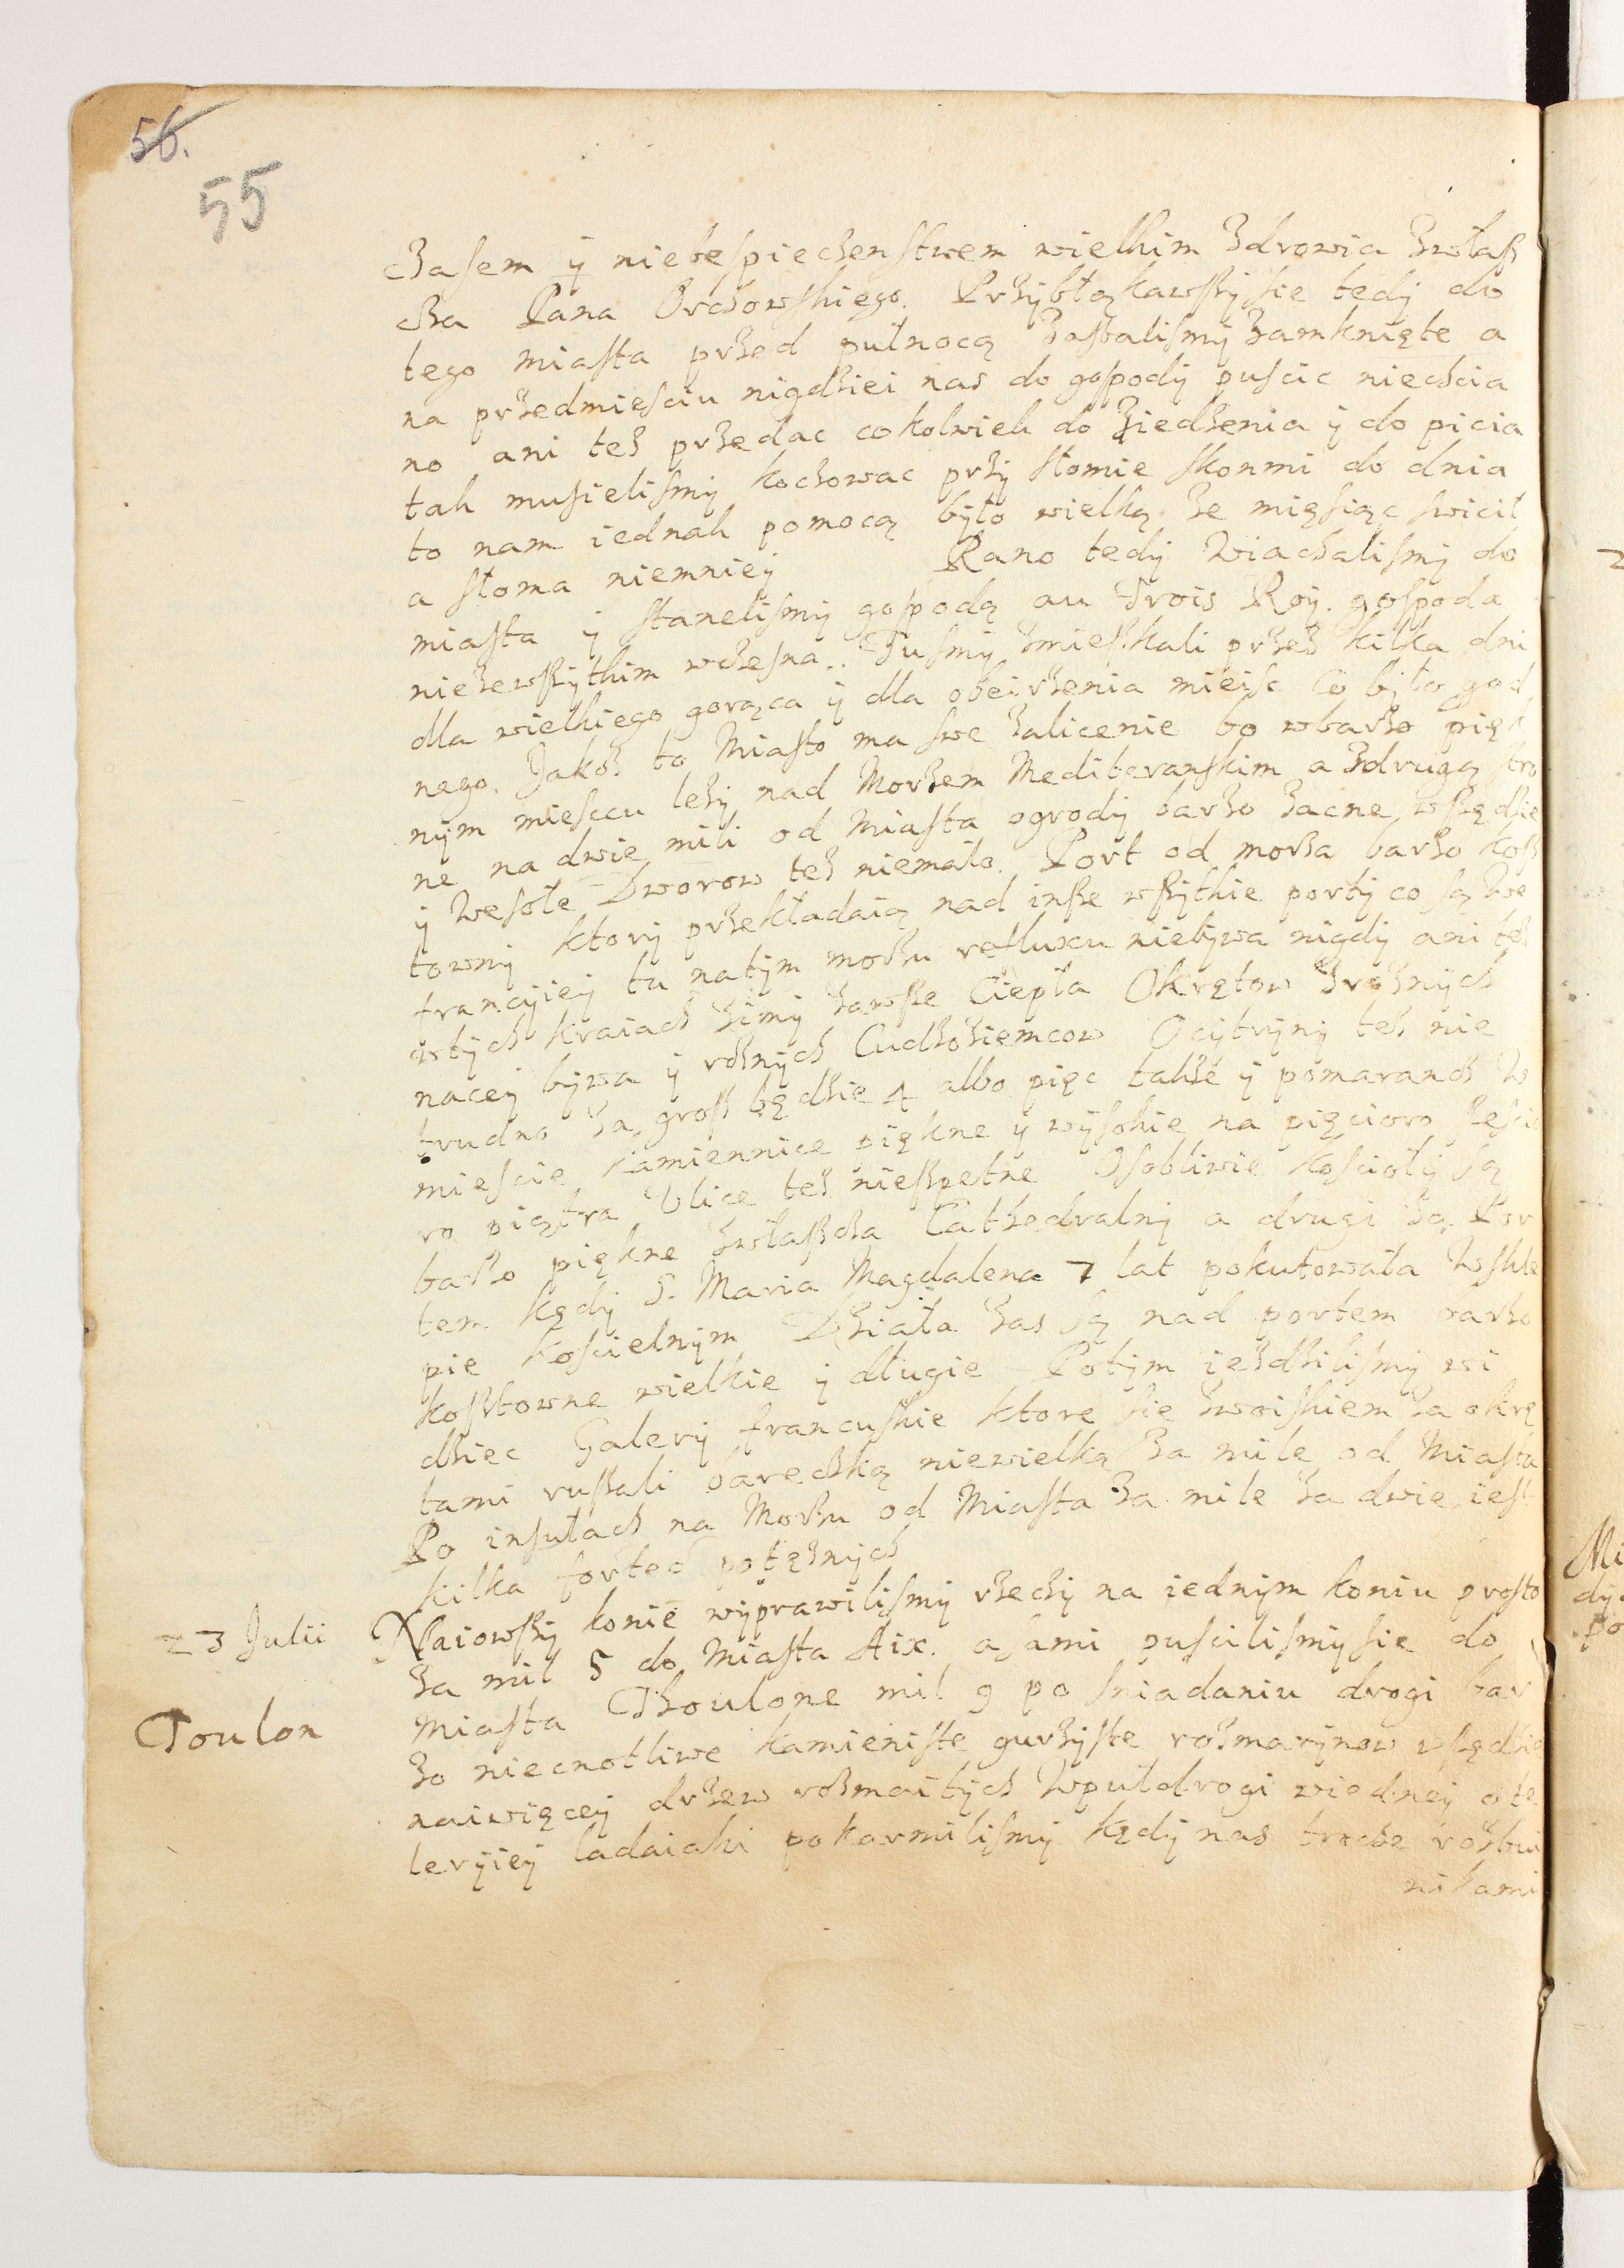 56.
55
czasem ÿ niebespieczenstwem wielkim zdrowia zwłasz
cza Pana Orchowskiego. Przÿbłąkawszÿ sie tedÿ do
tego miasta przed pułnocą zastalismÿ zamknięte a
na przedmiesciu nigdziei nas do gospodÿ puscic niechcia
no ani tez przedac cokolwiek do ziedzenia ÿ do picia
tak musielismÿ kochowac przÿ słomie skonmi do dnia
to nam iednak pomocą bÿło wielką ze mięsiąc swicił
a słoma niemnieÿ Rano tedÿ wiachalismÿ do
miasta ÿ stanelismÿ gospodą au Trois Roÿ. gospoda
niezewszÿtkim wczesna.. Tusmÿ zmieszkali przez kilka dni
dla wielkiego gorąca ÿ dla obeirzenia mieisc co bÿło god
nego. Jakoz to Miasto ma swe zalicenie bo wbarzo pięk
nÿm miescu lezÿ nad Morzem Mediteranskim a zdrugą stro
ne na dwie mili od Miasta ogrodÿ barzo zacne wszędzie
ÿ wesołe Dworow tez niemało. Port od morza barzo kosz
townÿ ktorÿ przekładaią nad insze wszÿtkie portÿ co są we
francÿieÿ tu natÿm morzu refluxu niebÿwa nigdÿ ani tez
wtÿch kraiach zimÿ zawsze Ciepła Okrętow zroznÿch
naceÿ bÿwa ÿ roznÿch Cudzoziemcow Ocÿtrÿnÿ tez nie
trudno za grosz będzie 4 albo pięc takze ÿ pomaranch w
miescie kamiennice piękne ÿ wÿsokie na pięcioro szescio
ro piątra Vlice tez nieszpetne Osobliwie kosciołÿ są
barzo piękne zwłaszcza Cathedralnÿ a drugi za Por
tem kędÿ S. Maria Magdalena 7 lat pokutowała wskle
pie koscielnÿm Dział zas są nad portem barzo
kosztowne wielkie ÿ długie Potÿm iezdzilismÿ wi
dziec Galerÿ francuskie ktore sie zwoiskiem za okrę
tami ruszali bareczką niewielką za mile od Miasta
Po insułach na Morzu od Miasta za mile za dwie iest
kilka fortec potęznÿch
23 Julii Naiowszÿ konie wÿprawilismÿ rzeczÿ na iednÿm koniu prosto
za mil 5 do Miasta Aix. a sami puscilismÿ sie do
Toulon Miasta Thoulone mil 9 po sniadaniu drogi bar
zo niecnotliwe kamieniste gurzÿste rozmarÿnow wszędzie
naiwięceÿ drzew rozmaitÿch wpułdrogi wiedneÿ oste
lerÿieÿ ladaiaki pokarmilismÿ kędÿ nas troche rozbui
nikami